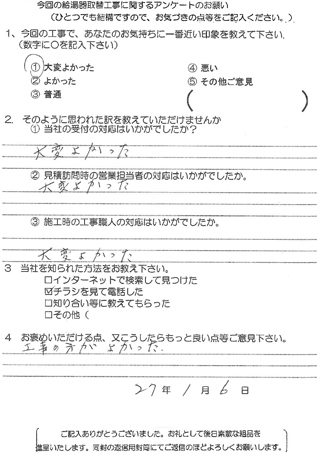 今回の給湯器取替工事に関するアンケートのお願い
（ひとつでも結構ですので、お気づきの点等をご記入ください。）
1、今回の工事で、あなたのお気持ちに一番近い印象を教えて下さい。
（数字に○を記入下さい）
① 大変よかった ④ 悪い
② よかった ⑤ その他ご意見
③ 普通 （ ）
2．そのように思われた訳を教えていただけませんか
① 当社の受付の対応はいかがでしたか？
大変よかった
② 見積訪問時の営業担当者の対応はいかがでしたか。
大変よかった
③ 施工時の工事職人の対応はいかがでしたか。
大変よかった
3 当社を知られた方法をお教え下さい。
□インターネットで検索して見つけた
☑チラシを見て電話した
□知り合い等に教えてもらった
□その他（
4 お褒めいただける点、又こうしたらもっと良い点等ご意見下さい。
工事の方がよかった．
27年 1月 6日
ご記入ありがとうございました。お礼として後日素敵な粗品を
進呈いたします。同封の返信用封筒にてご返信のほどよろしくお願いします。